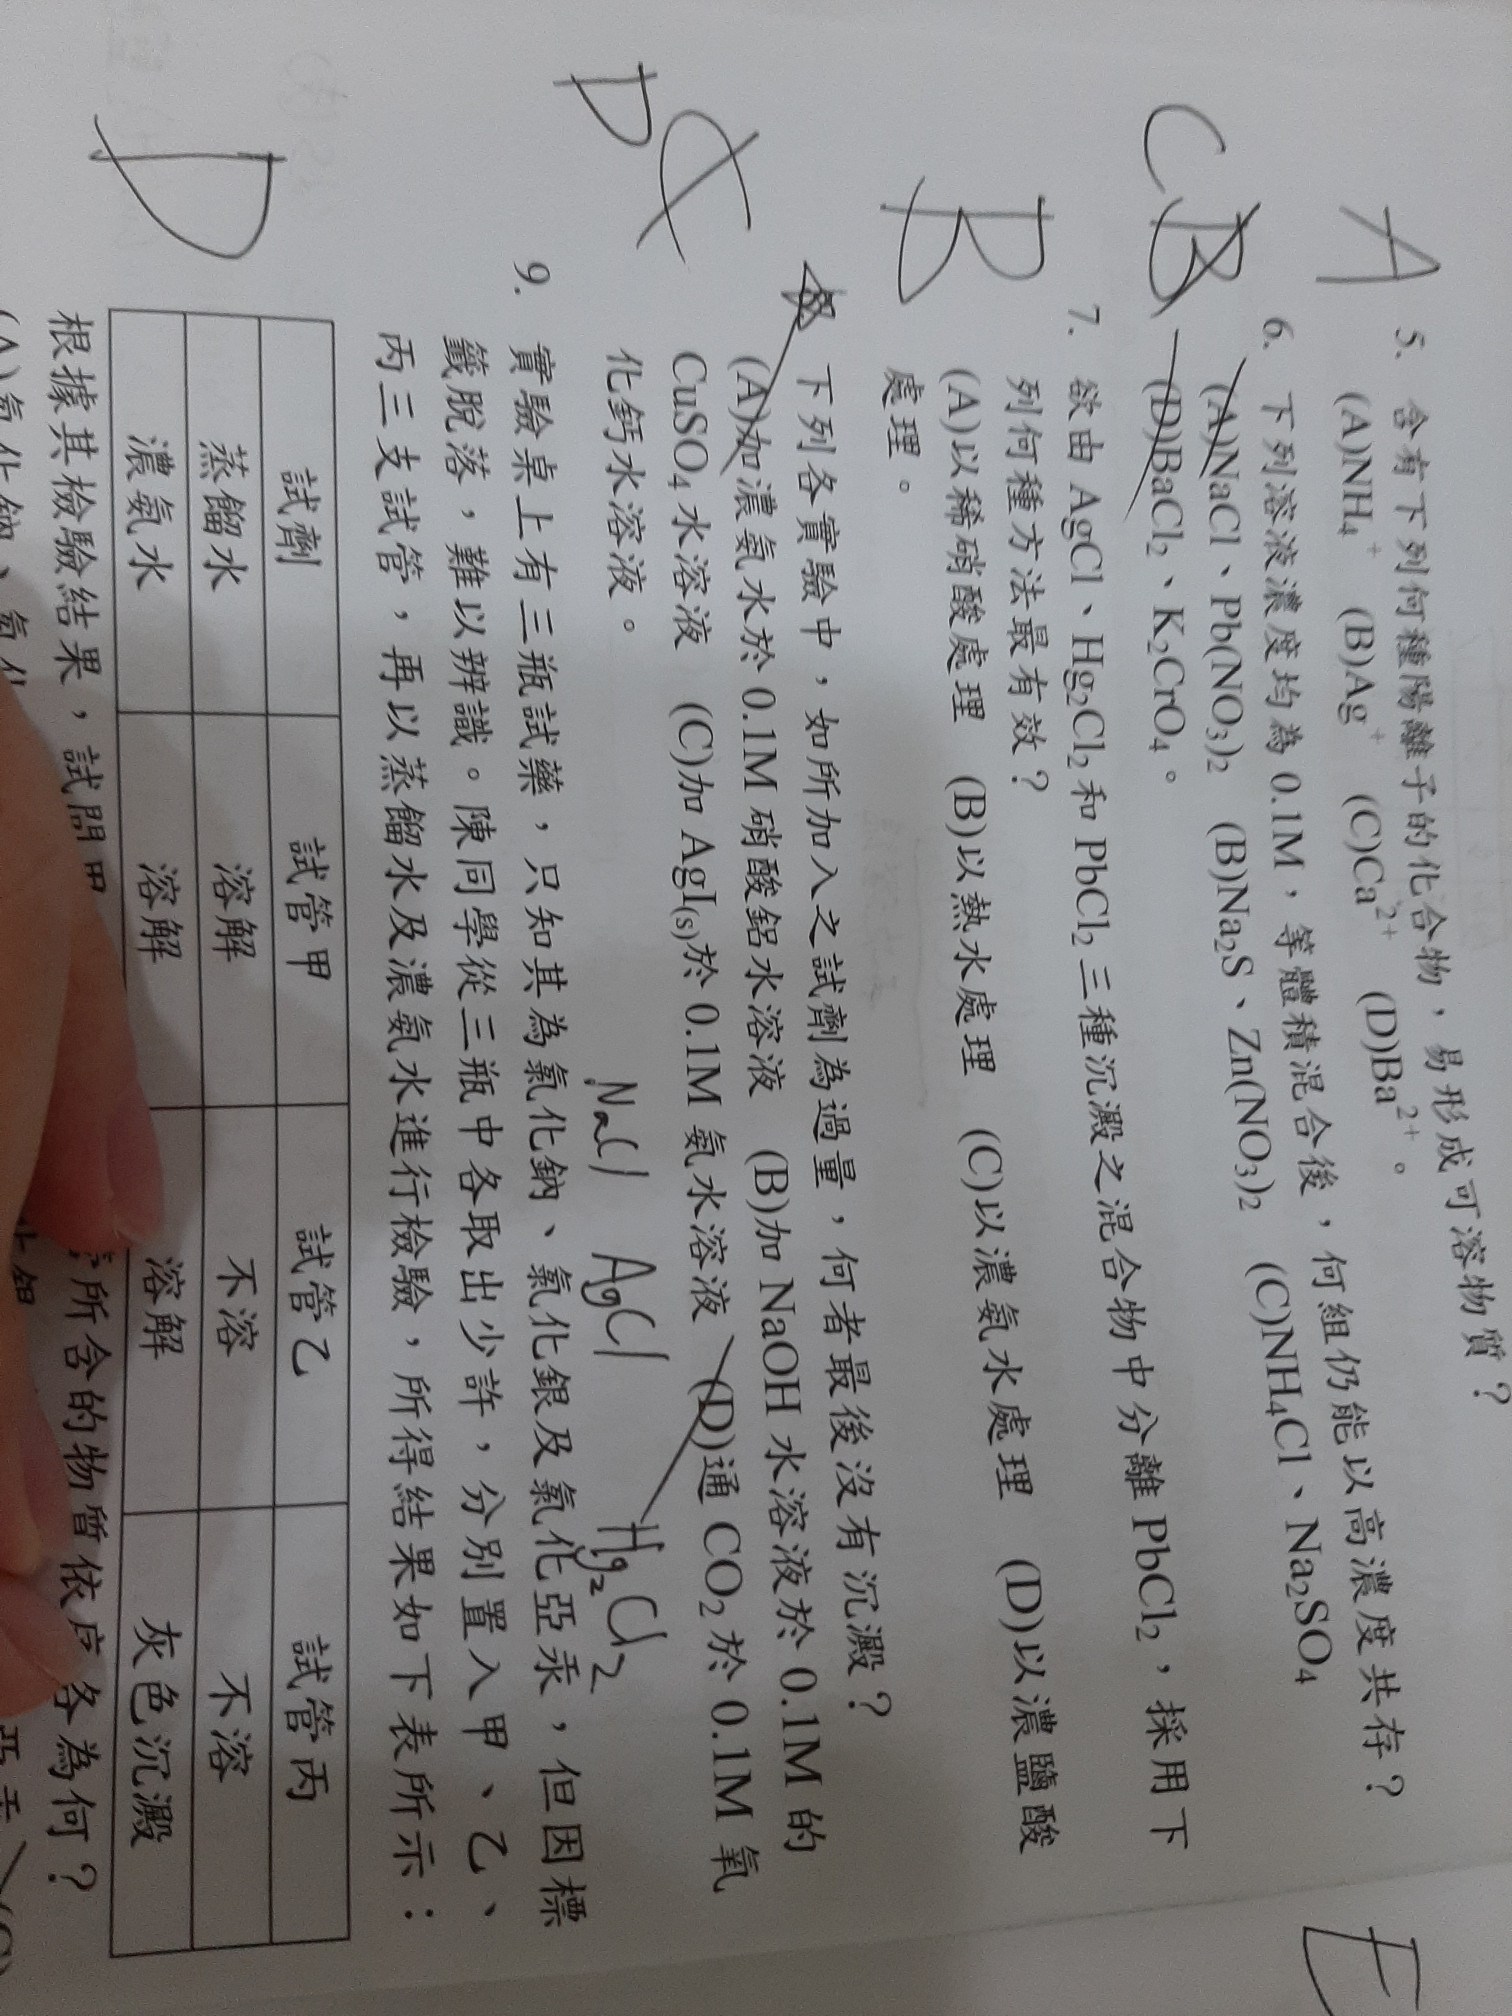 A
5. 含有下列何種陽離子的化合物，易形成可溶物質？
(A)NH₄⁺ (B)Ag⁺ (C)Ca²⁺ (D)Ba²⁺。
C B
6. 下列溶液濃度均為 0.1M，等體積混合後，何組仍能以高濃度共存？
(A)NaCl、Pb(NO₃)₂ (B)Na₂S、Zn(NO₃)₂ (C)NH₄Cl、Na₂SO₄
(D)BaCl₂、K₂CrO₄。
B
7. 欲由 AgCl、Hg₂Cl₂ 和 PbCl₂ 三種沉澱之混合物中分離 PbCl₂，採用下
列何種方法最有效？
(A)以稀硝酸處理 (B)以熱水處理 (C)以濃氨水處理 (D)以濃鹽酸
處理。
D
下列各實驗中，如所加入之試劑為過量，何者最後沒有沉澱？
(A)加濃氨水於 0.1M 硝酸鋁水溶液 (B)加 NaOH 水溶液於 0.1M 的
CuSO₄ 水溶液 (C)加 AgI(s)於 0.1M 氨水溶液 (D)通 CO₂ 於 0.1M 氫氧
化鈣水溶液。
NaCl AgCl Hg₂Cl₂
D
9. 實驗桌上有三瓶試藥，只知其為氯化鈉、氯化銀及氯化亞汞，但因標
籤脫落，難以辨識。陳同學從三瓶中各取出少許，分別置入甲、乙、
丙三支試管，再以蒸餾水及濃氨水進行檢驗，所得結果如下表所示：
試劑 試管甲 試管乙 試管丙
蒸餾水 溶解 不溶 不溶
濃氨水 溶解 溶解 灰色沉澱
根據其檢驗結果，試問甲 所含的物質依序各為何？